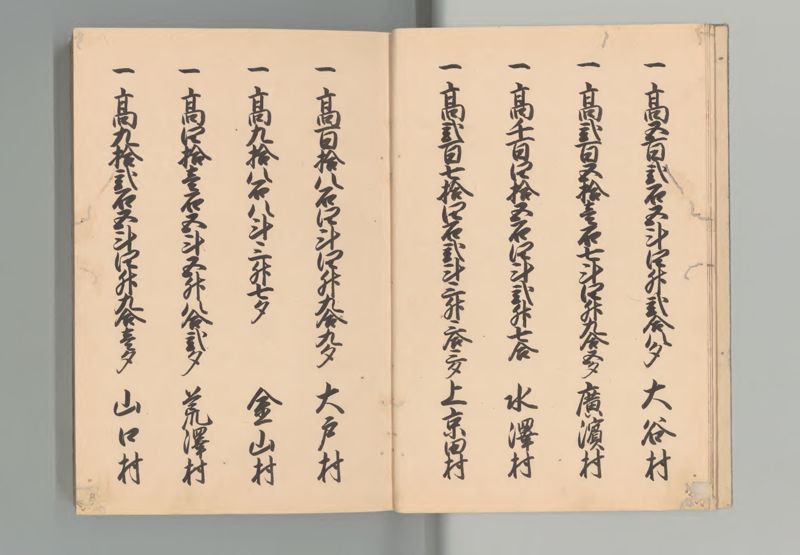 一 高五百弐石五斗四升弐合八夕 大谷村
一 高弐百五拾壱石七斗四升九合五夕 廣濱村
一 高千百四拾五石四斗弐升七合 水澤村
一 高弐百七拾四石弐斗三升三合三夕 上京田村
一 高百拾八石四斗四升九合九夕 大戸村
一 高九拾八石八斗三升七夕 金山村
一 高四拾壱石五斗五升八合弐夕 荒澤村
一 高九拾弐石五斗四升九合壱夕 山口村